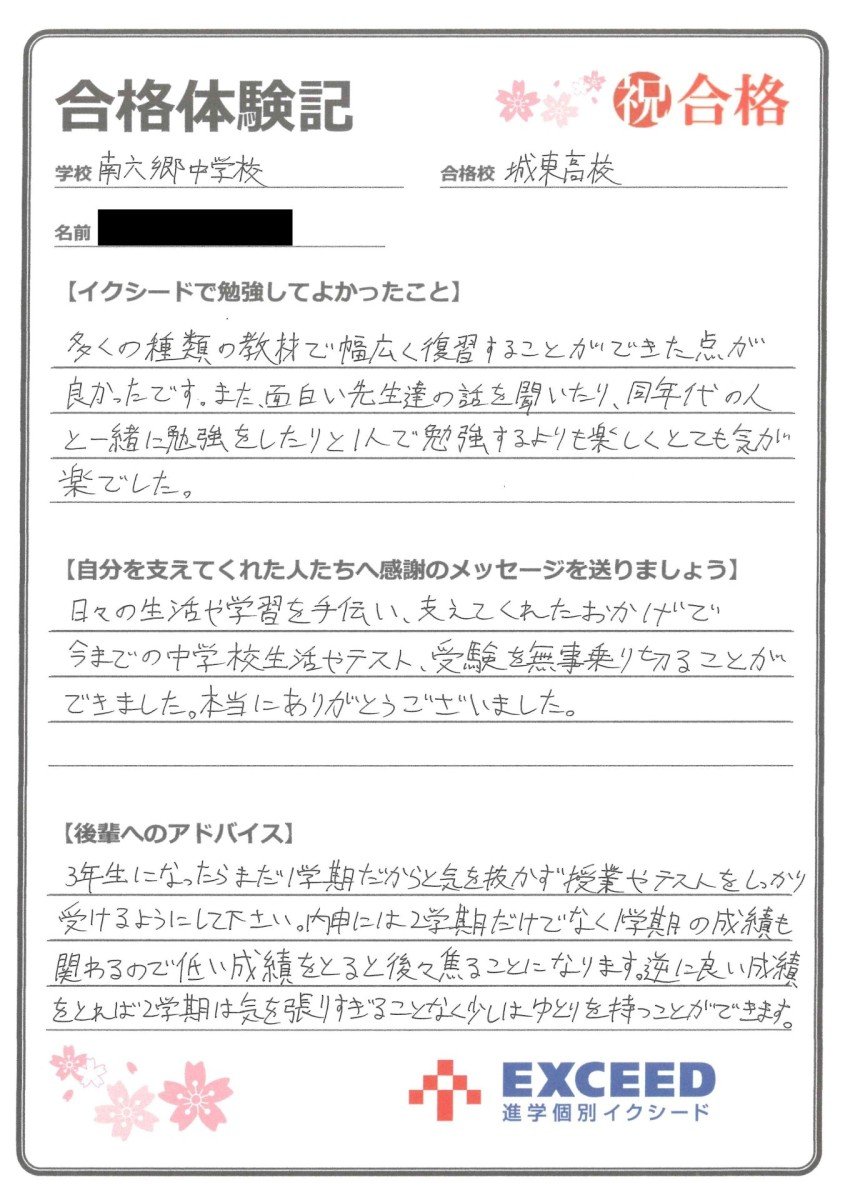 合格体験記
祝 合格
学校 南六郷中学校
合格校 城東高校
名前
【イクシードで勉強してよかったこと】
多くの種類の教材で幅広く復習することができた点が
良かったです。また、面白い先生達の話を聞いたり、同年代の人
と一緒に勉強をしたりと1人で勉強するよりも楽しくとても気が
楽でした。
【自分を支えてくれた人たちへ感謝のメッセージを送りましょう】
日々の生活や学習を手伝い、支えてくれたおかげで
今までの中学校生活やテスト、受験を無事乗り切ることが
できました。本当にありがとうございました。
【後輩へのアドバイス】
3年生になったらまだ1学期だからと気を抜かず授業やテストをしっかり
受けるようにして下さい。内申には2学期だけでなく1学期の成績も
関わるので低い成績をとると後々焦ることになります。逆に良い成績
をとれば2学期は気を張りすぎることなく少しはゆとりを持つことができます。
EXCEED
進学個別イクシード